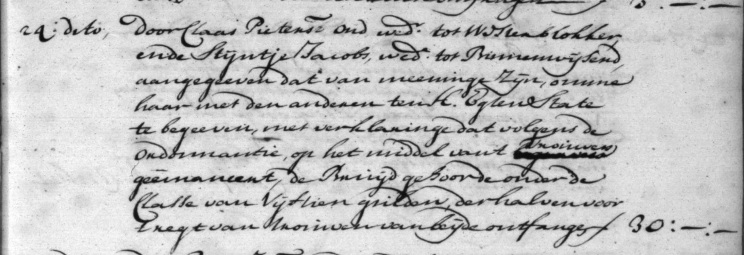 24: dito, door Claas Pieterse Oud wedr: tot Wijdenes blokker,
ende Stijntje Jacobs, wed: tot Binnenwijsend
aangegeven dat van meeninge zijn, omme
haar met den anderen ten H. Egten State
te begeeven, met verklaringe dat volgens de
Ordonnantie, op het middel van't Trouwen
geëmaneert, de Bruijd gehoorde onder de
Classe van Vijftien gulden, derhalven voor
't regt van Trouwen van beijde ontfangen / 30:—:—